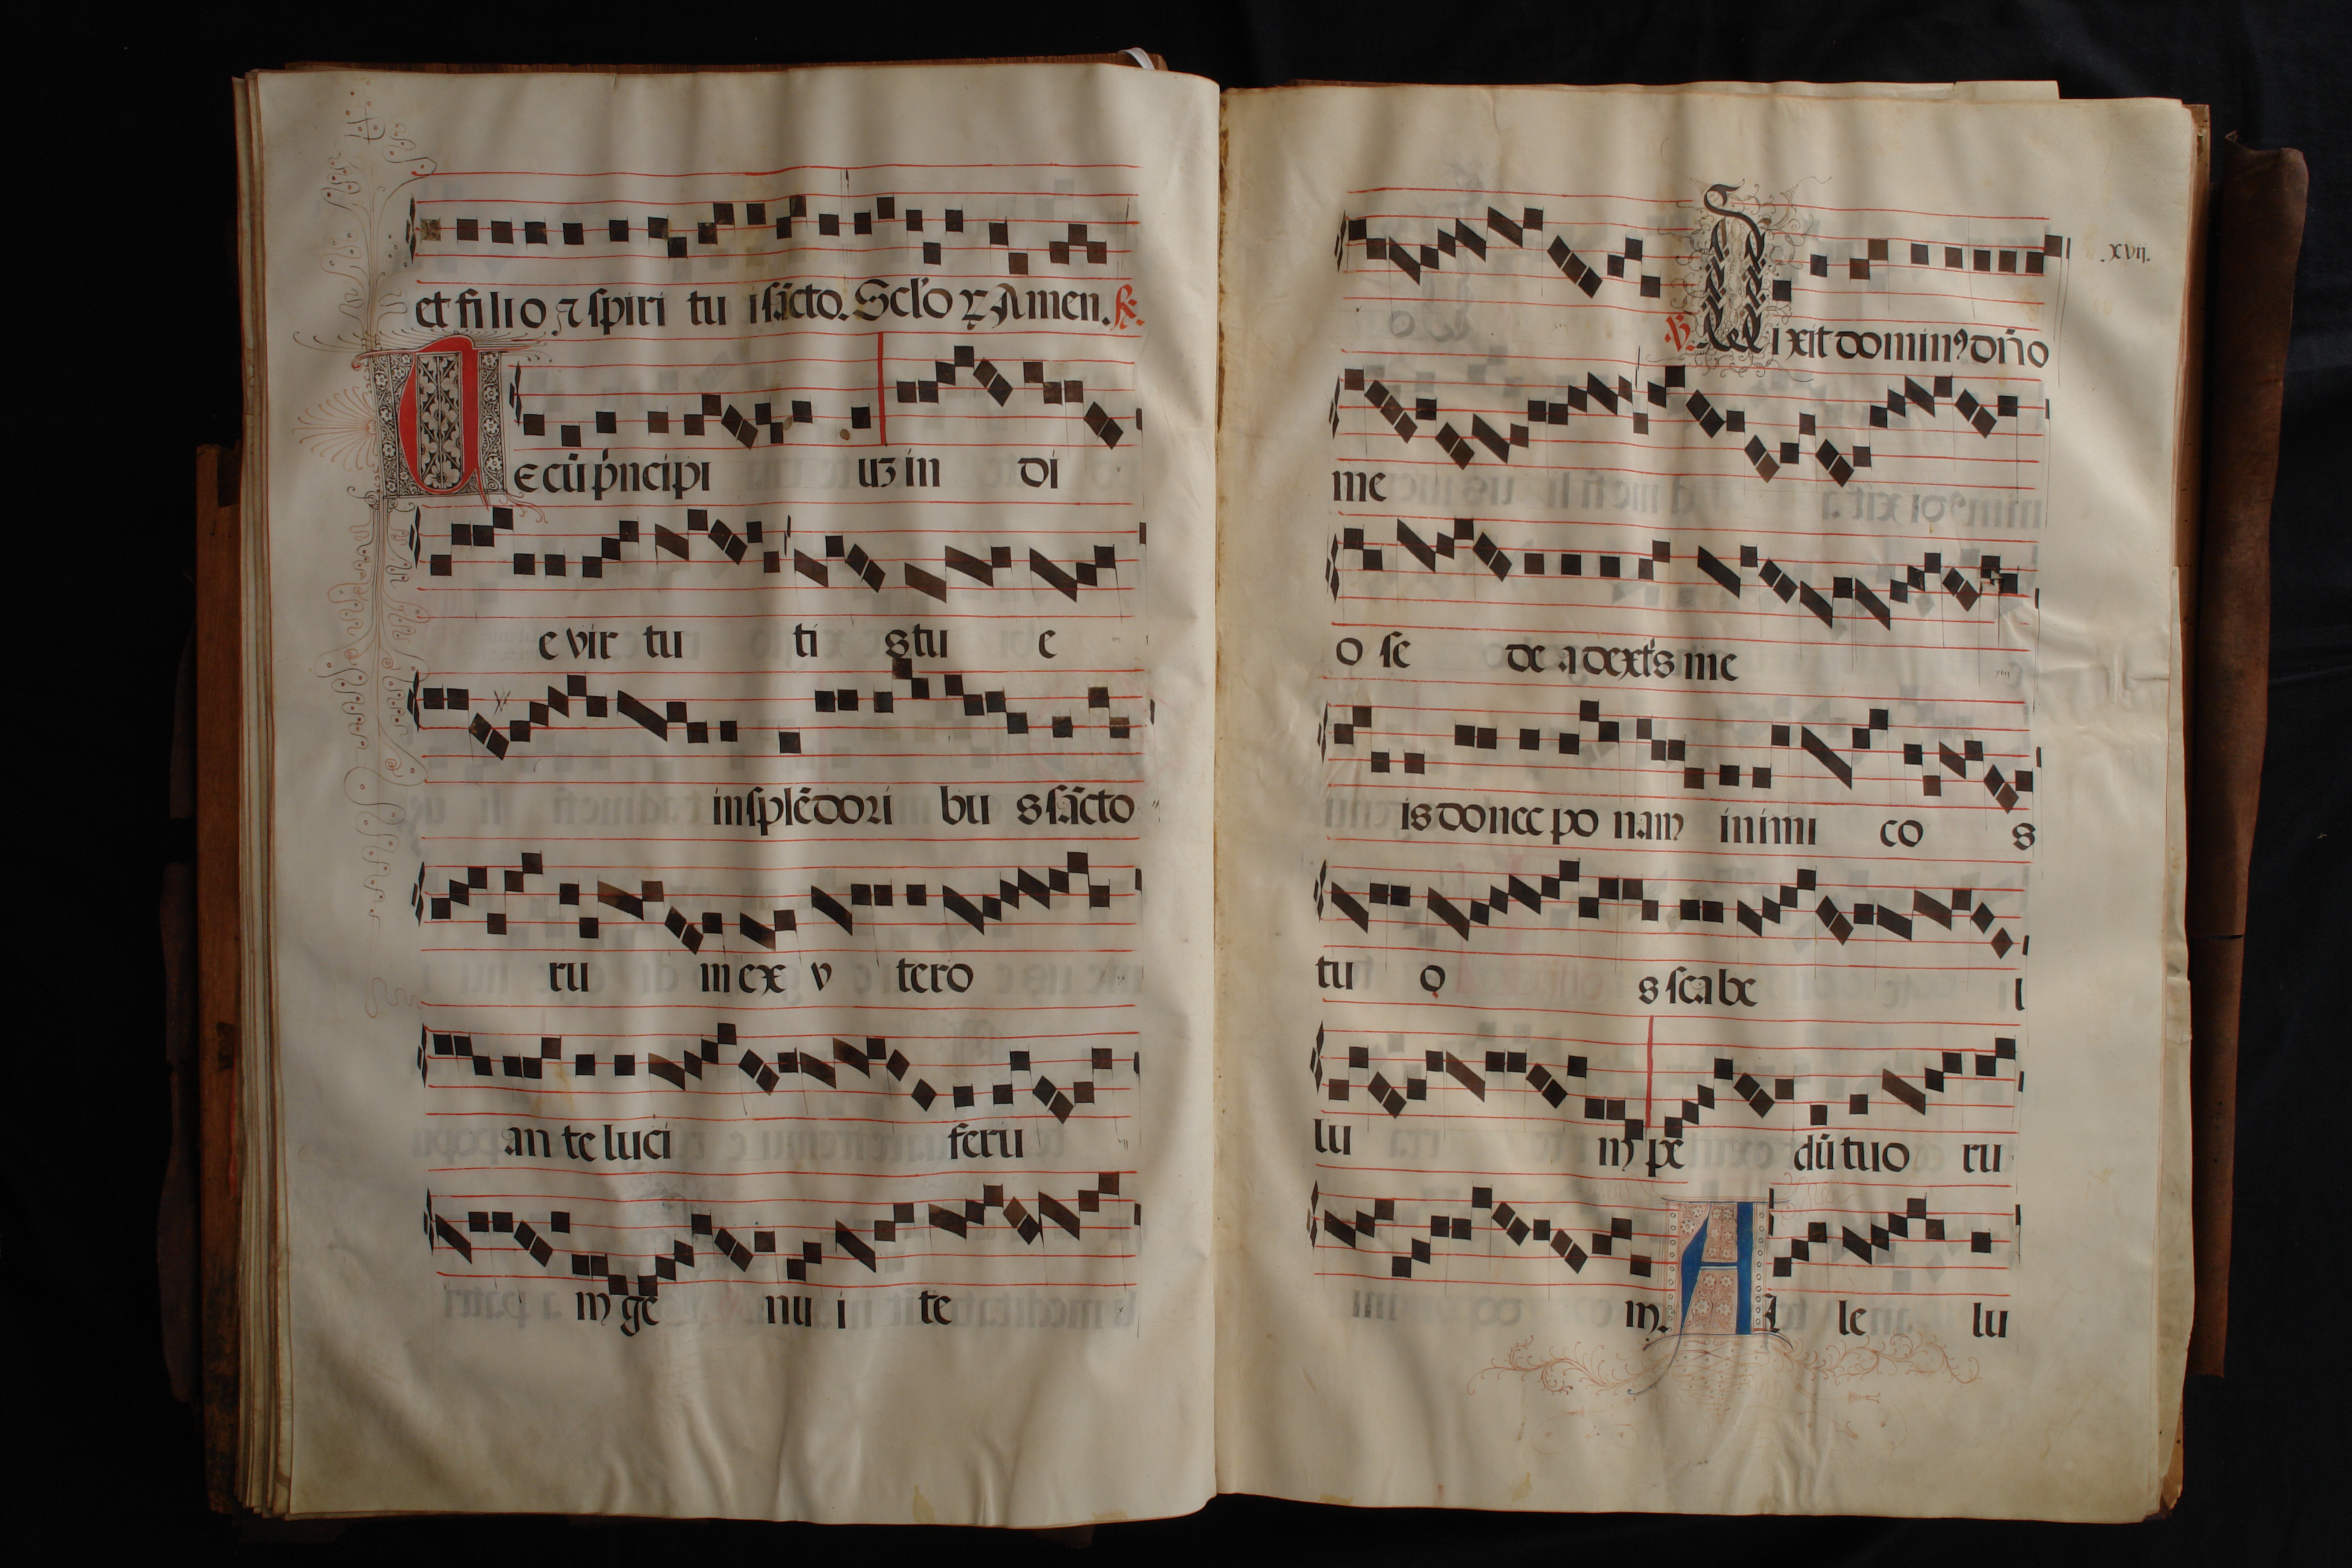 et filio ⁊ spiri tu i sãcto. Sclo ꝝ Amen. ℟.
Tecũ pⁱncipi uꝫ in di
e vir tu ti s tu e
in splẽdori bu s sãcto
ru m ex v tero
an te luci feru
m ge nu i te
xvij.
℣. Dixit dominꝰ dño
me
o se de a dextⁱs me
is donec po nam inimi co s
tu o s scabe l
lu m pe dũ tuo ru
m. A le lu